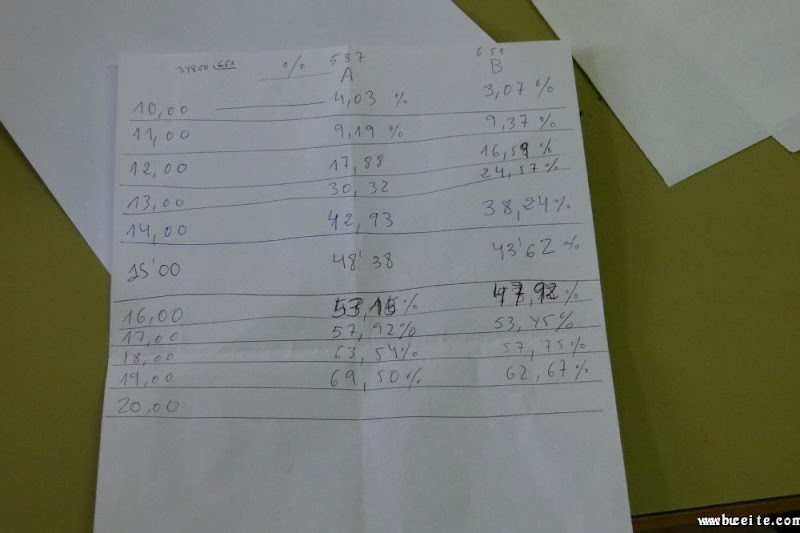 37800 651 % 587 651
A B
10,00 4,03 % 3,07 %
11,00 9,19 % 9,37 %
12,00 17,88 16,59 %
13,00 30,32 24,57 %
14,00 42,93 38,24 %
15'00 48'38 43'62 %
16,00 53,15 % 47,92 %
17,00 57,92 % 53,45 %
18,00 63,54 % 57,75 %
19,00 69,50 % 62,67 %
20,00